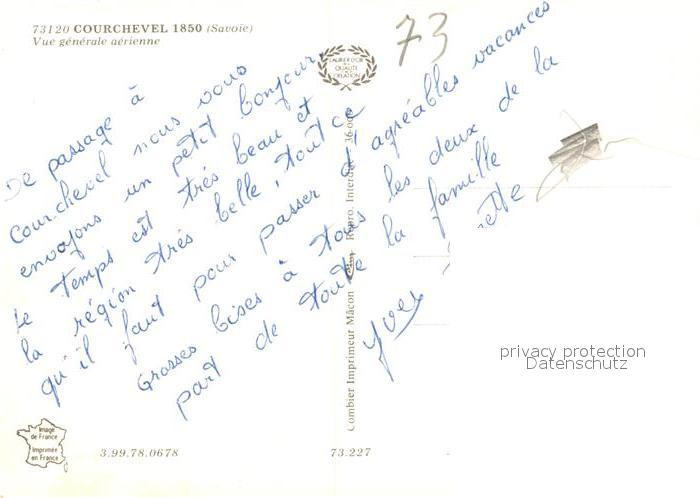 73120 COURCHEVEL 1850 (Savoie)
Vue générale aérienne
73
LAURIER D'OR
QUALITÉ
CRÉATION
De passage à
Courchevel nous vous
envoyons un petit bonjour,
Le temps est très beau et
la région très belle, tout ce
qu'il faut pour passer d'agréables vacances
Grosses bises à tous les deux de la
part de toute la famille
ette
Yves
Combier Imprimeur Mâcon
Repro. Interdite
privacy protection
Datenschutz
Image
de France
Imprimée
en France
3.99.78.0678
73.227